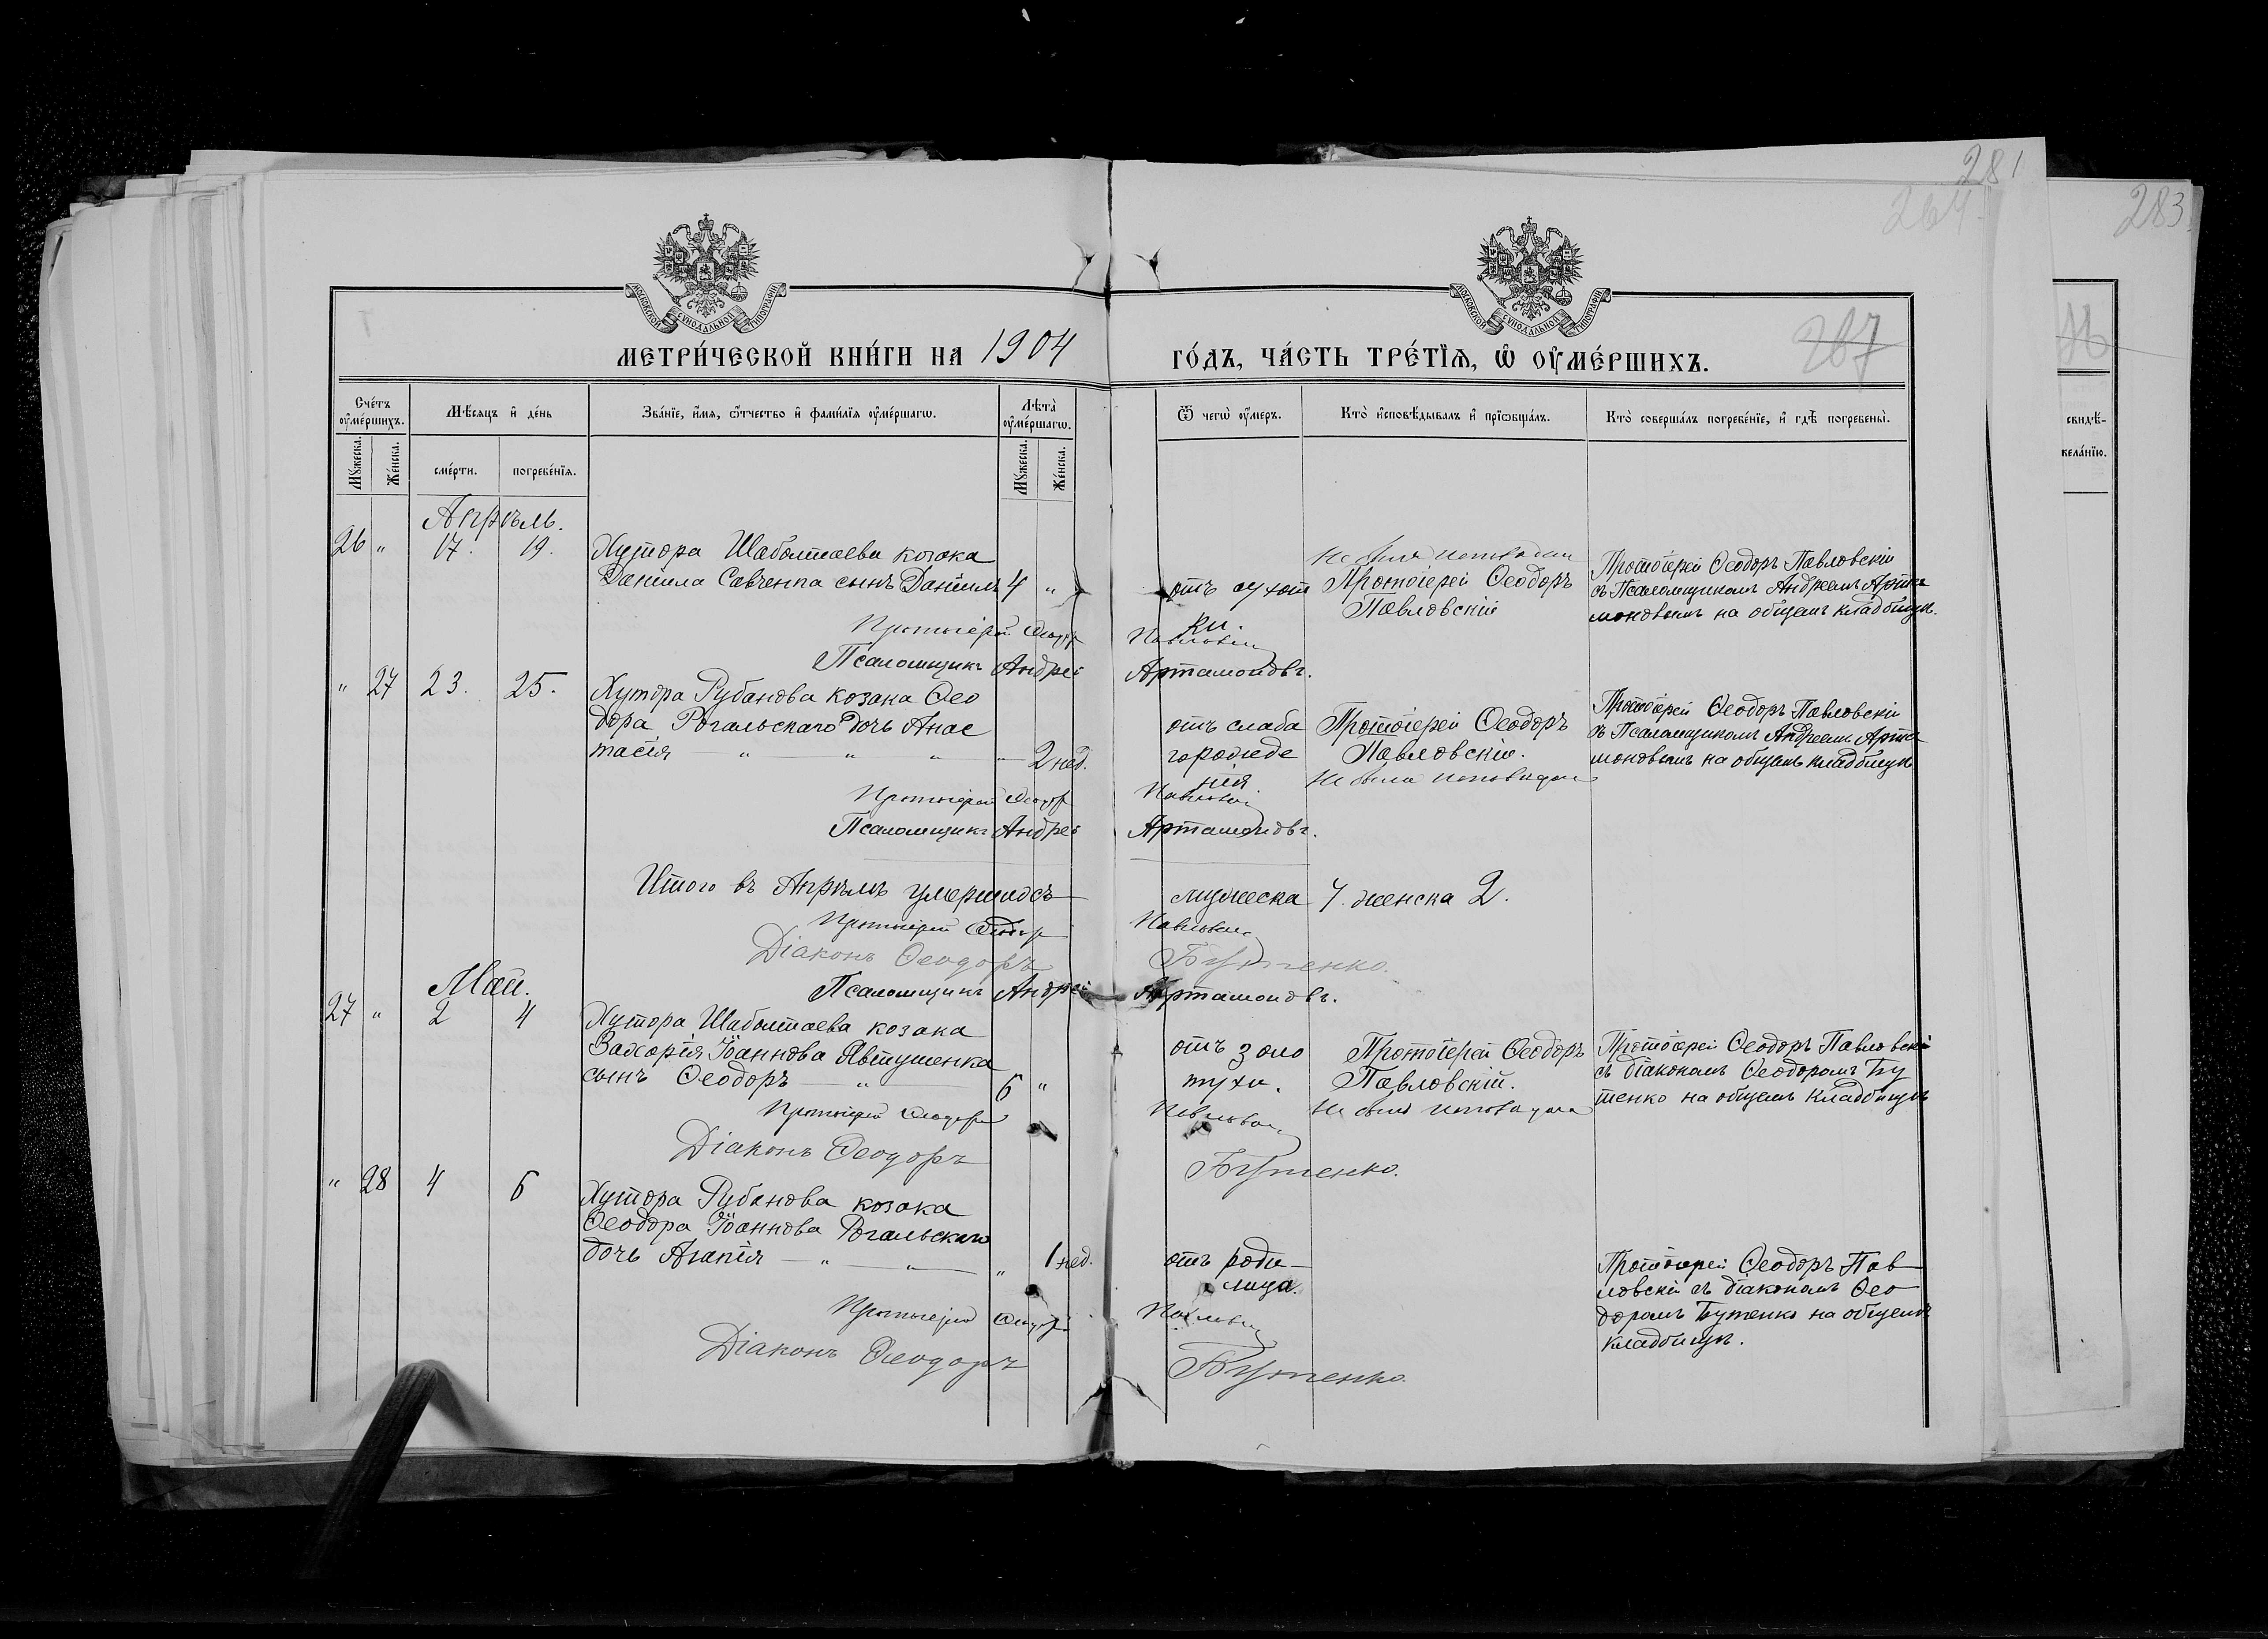 281
264
283
267
МОСКОВСКОЙ СѴНОДАЛЬНОЙ ТИПОГРАФІИ
МОСКОВСКОЙ СѴНОДАЛЬНОЙ ТИПОГРАФІИ
МЕТРИ́ЧЕСКОЙ КНИ́ГИ НА 1904 ГО́ДЪ, ЧА́СТЬ ТРЕ́ТІѦ, Ѡ҆ ОУ҆МЕ́РШИХЪ.
Сче́тъ оу҆ме́ршихъ.
Мѣ́сяцъ и҆ де́нь
Зва́ніе, и҆́мя, ѻ҆́тчество и҆ фами́лія оу҆ме́ршагѡ.
Лѣта̀ оу҆ме́ршагѡ.
Ѿ чегѡ̀ оу҆́меръ.
Кто̀ и҆сповѣ́дывалъ и҆ прїѡбща́лъ.
Кто̀ соверша́лъ погребе́нїе, и҆ гдѣ̀ погребены̀.
свидѣ-
желáнїю.
Мꙋ́жеска.
Же́нска.
сме́рти.
погребе́нїя.
Мꙋ́жеска.
Же́нска.
Апрѣль.
26 " 17. 19.
Хутора Шаболтаева козака
Даніила Савченка сынъ Даніилъ 4 "
отъ сухот
ки.
Не былъ исповѣдан
Протоіерей Ѳеодоръ
Павловскій
Протоіерей Ѳеодоръ Павловскій
съ Псаломщикомъ Андреемъ Арта
моновымъ на общемъ кладбищѣ.
Протоіерей Ѳеодоръ Павловскій
Псаломщикъ Андрей Артамоновъ.
" 27 23. 25.
Хутора Рубанова козака Ѳео
дора Рогальскаго дочь Анас
тасія — " " " — 2 нед.
отъ слаба
го рожде
нія
Протоіерей Ѳеодоръ
Павловскій.
Не была исповѣдана
Протоіерей Ѳеодоръ Павловскій
съ Псаломщикомъ Андреемъ Арта
моновымъ на общемъ кладбищѣ
Протоіерей Ѳеодоръ Павловскій
Псаломщикъ Андрей Артамоновъ.
Итого въ Апрѣлѣ умершихъ мужеска 7. женска 2.
Протоіерей Ѳеодоръ Павловскій
Діаконъ Ѳеодоръ Бутенко.
Псаломщикъ Андрей Артамоновъ.
Май.
27 " 2 4
Хутора Шаболтаева козака
Захарія Іоаннова Явтушенка
сынъ Ѳеодоръ — " 6 "
отъ золо
тухи.
Протоіерей Ѳеодоръ
Павловскій.
Не былъ исповѣдан
Протоіерей Ѳеодоръ Павловскій
съ діакономъ Ѳеодоромъ Бу
тенко на общемъ кладбищѣ
Протоіерей Ѳеодоръ Павловскій
Діаконъ Ѳеодоръ Бутенко.
" 28 4 6
Хутора Рубанова козака
Ѳеодора Іоаннова Рогальскаго
дочь Агапія — " — " — " 1 нед.
отъ роди-
мца.
Протоіерей Ѳеодоръ Пав
ловскій съ діакономъ Ѳео
доромъ Бутенко на общемъ
кладбищѣ.
Протоіерей Ѳеодоръ Павловскій
Діаконъ Ѳеодоръ Бутенко.